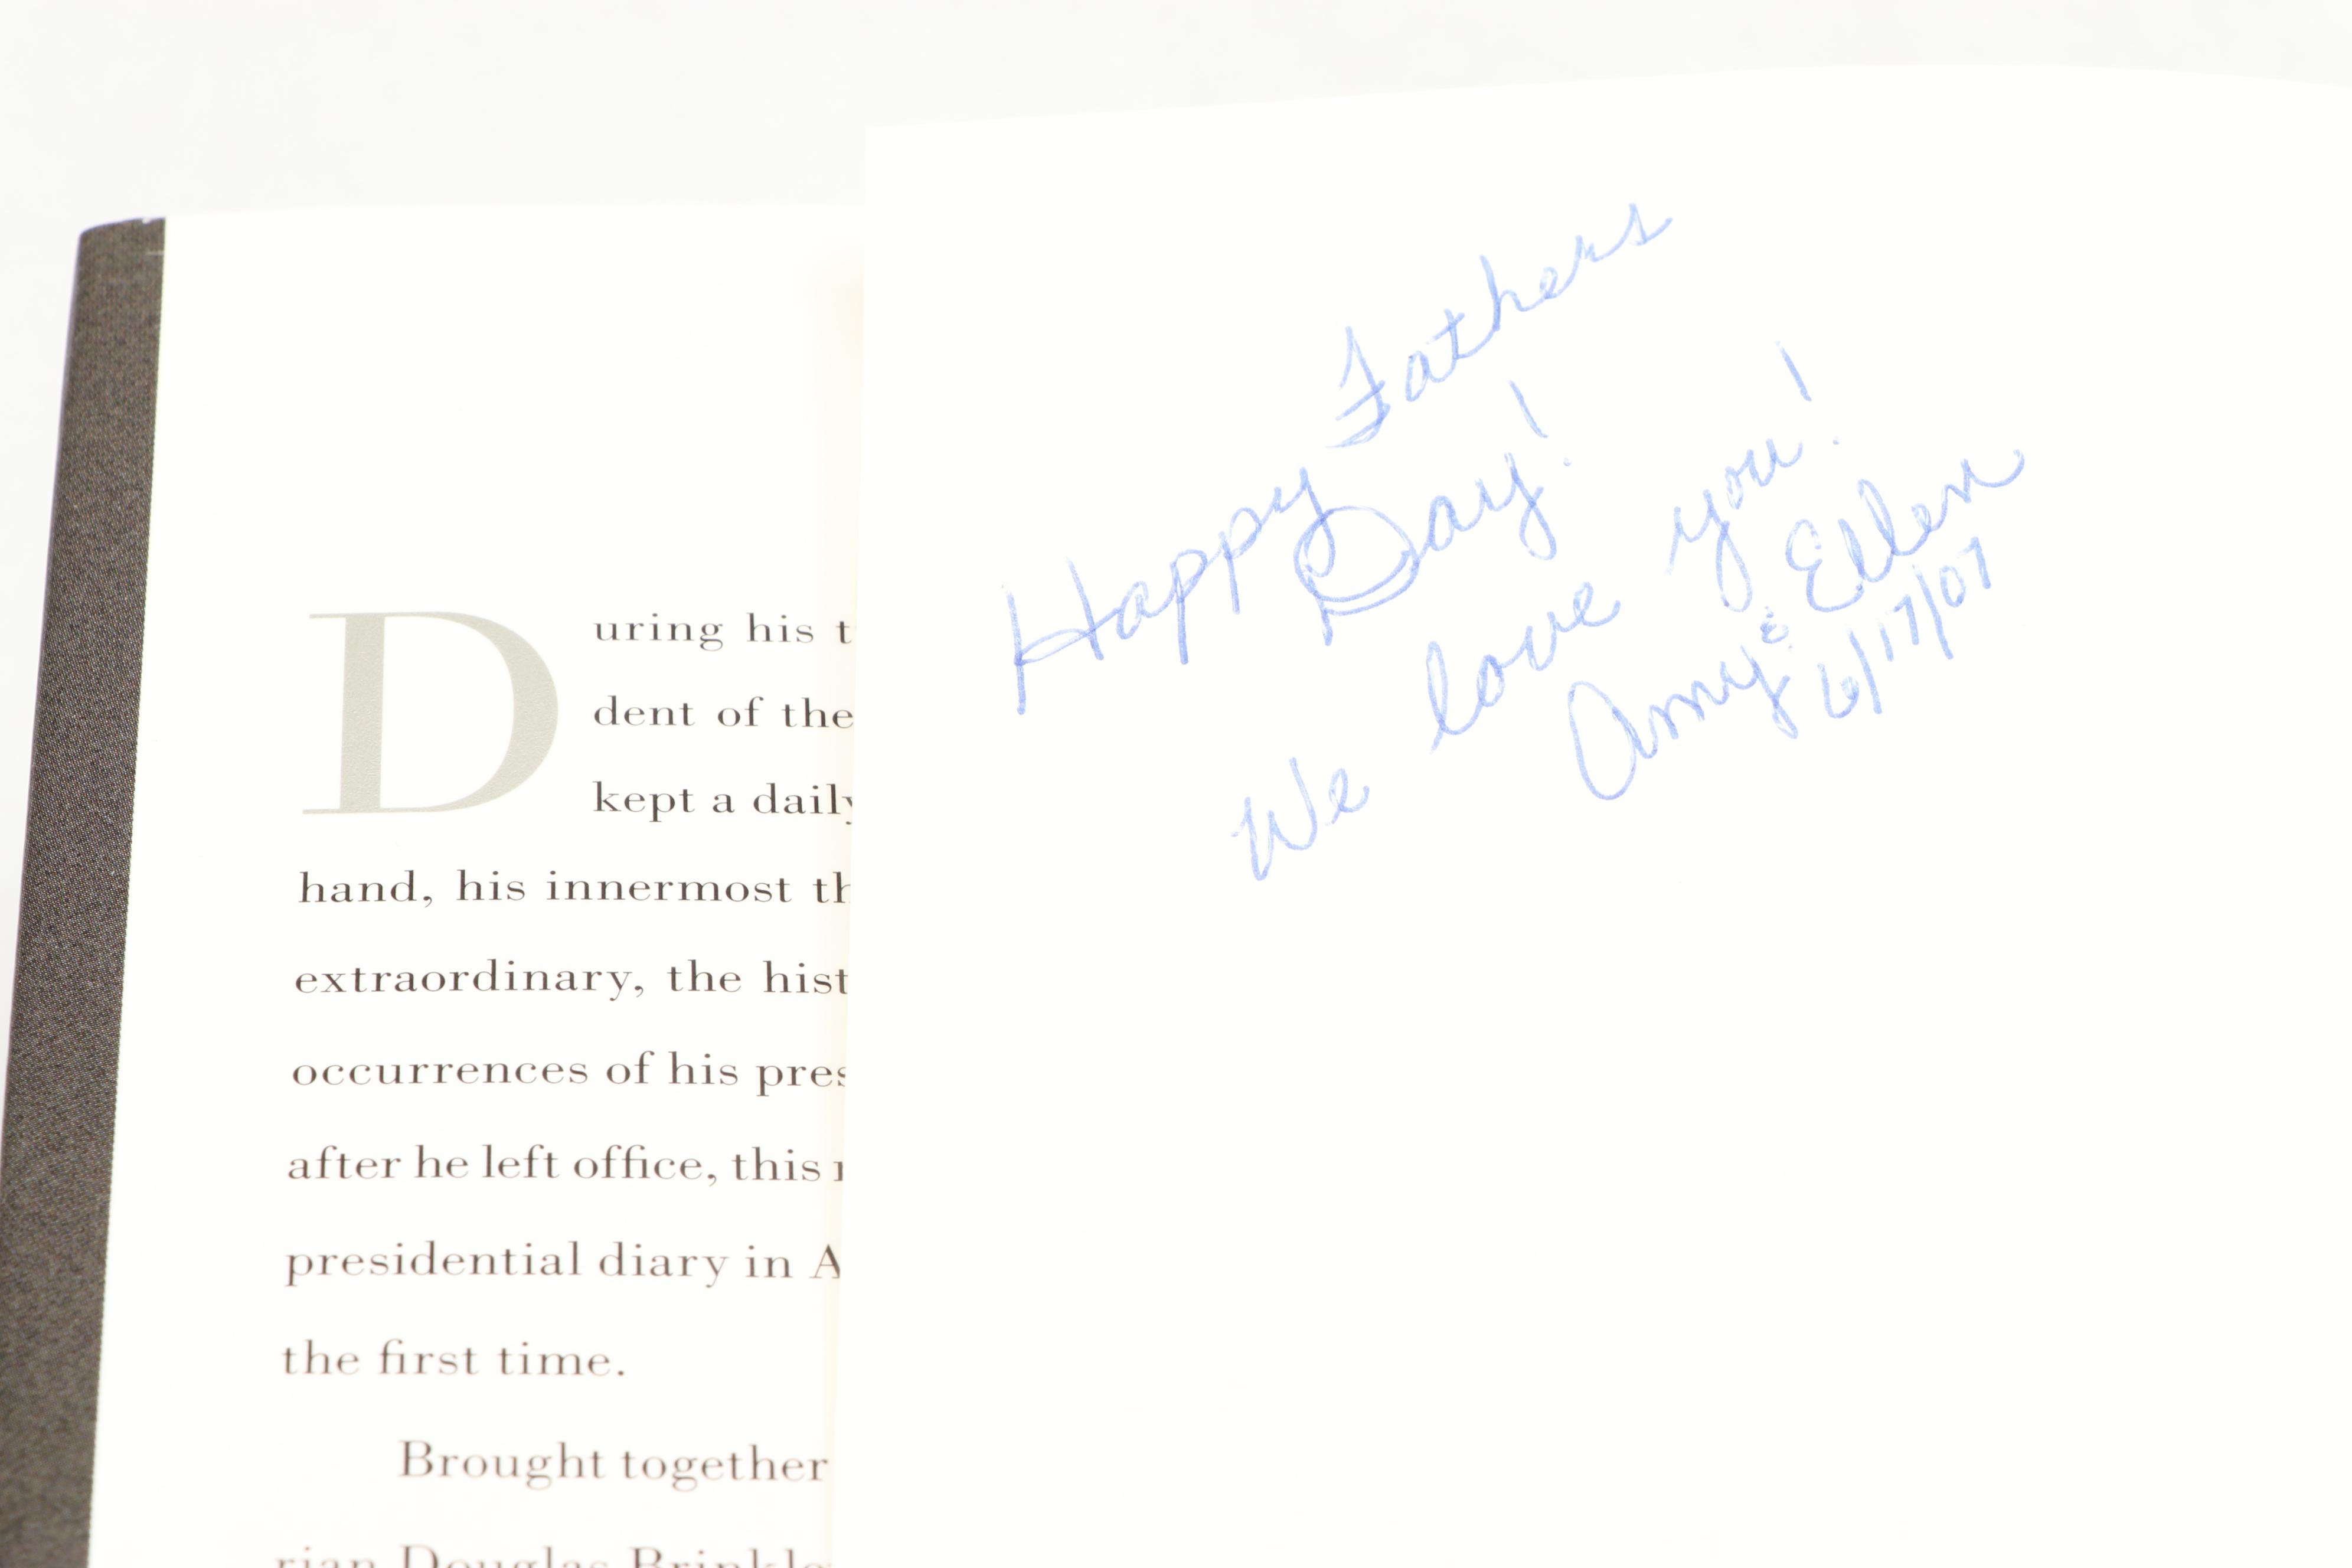 During his t
dent of the
kept a daily
hand, his innermost th
extraordinary, the hist
occurrences of his pres
after he left office, this
presidential diary in A
the first time.
Brought together
rian Douglas Brinkle
Happy Fathers
Day!
We love you!
Amy & Ellen
6/17/07